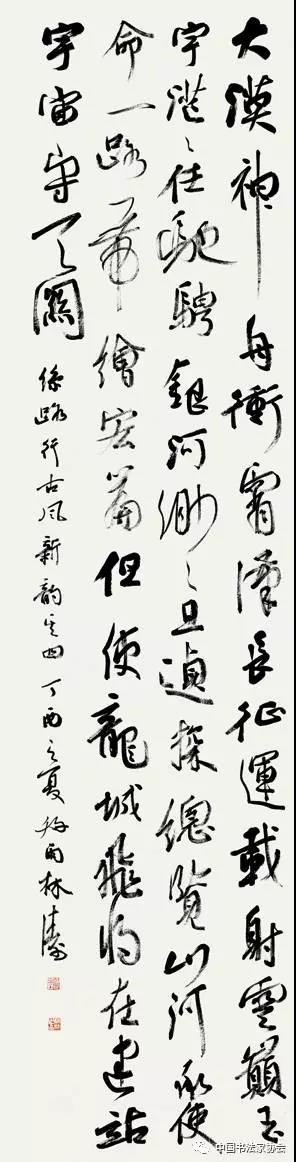 大漠神舟衝霄漢長征運載射雲巔玉
宇茫々任馳騁銀河渺々且遉探總覽山河承使
命一路一帶繪宏篇但使龍城飛將在建站
宇宙守天關
絲路行古風新韵其四丁酉之夏雨林濤
中国书法家协会